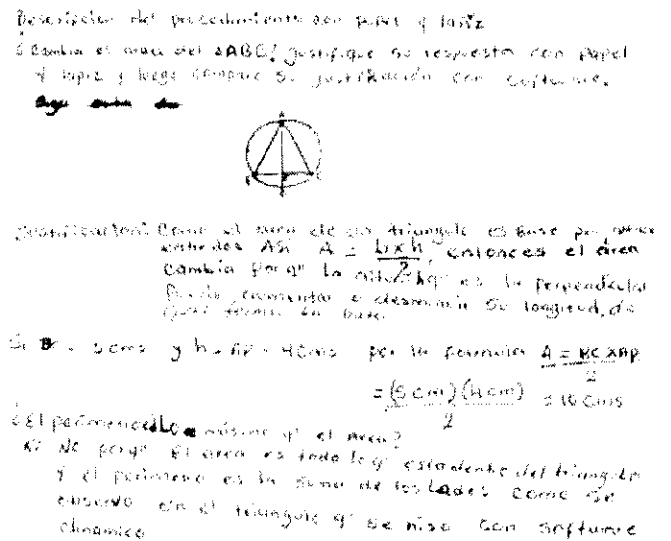 Descripción del procedimiento con papel y lapiz
¿Cambia el area del ΔABC? justifique su respuesta con papel
y lapiz y luego compare su justificación con software.
A
Justificación: Como el area de un triangulo es Base por altura
entre dos Asi A = bxh / 2, entonces el área
cambia porq' la altura q' es la perpendicular
Puede aumentar o disminuir su longitud, de
igual forma la base.
Si = 5 cms y h = AP = 4cms por la formula A = BC x AP / 2
= (5 cm)(4cm) / 2 = 10 cms
¿El perimetro es lo mismo q' el area?
R/ No porq' El area es todo lo q' esta dentro del triangulo
y el perimetro es la suma de los lados como se
observo en el triangulo q' se hiso con software
dinamico